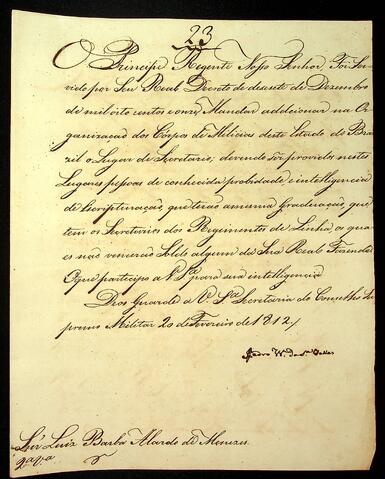 23
O Principe Regente Nosso Senhor, Foi Ser-
vido por Seu Real Decreto de desasete de Dezembro
de mil oito centos e onze Mandar addicionar na Or-
ganização dos Corpos de Milicias deste Estado do Bra-
zil o Lugar de Secretario; devendo ser providos nestes
Lugares pessoas de conhecida probidade e intelligencia
de Escripturação, que terão a mesma Graduação, que
tem os Secretarios dos Regimentos de Linha, os quaes
não vencerão Soldo algum da Sua Real Fazenda:
O que participo a V. Sª para sua intelligencia
Deos Guarde a V. Sª Secretaria do Conselho Su-
premo Militar 20 de Fevereiro de 1812 /
Pedro
Snr Luiz Barba Alardo de Menezes